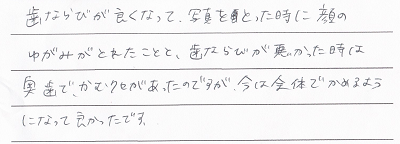 歯ならびが良くなって、写真をとった時に顔の
ゆがみがとれたことと、歯ならびが悪かった時は
奥歯で、かむクセがあったのですが、今は全体でかめるよう
になって良かったです。